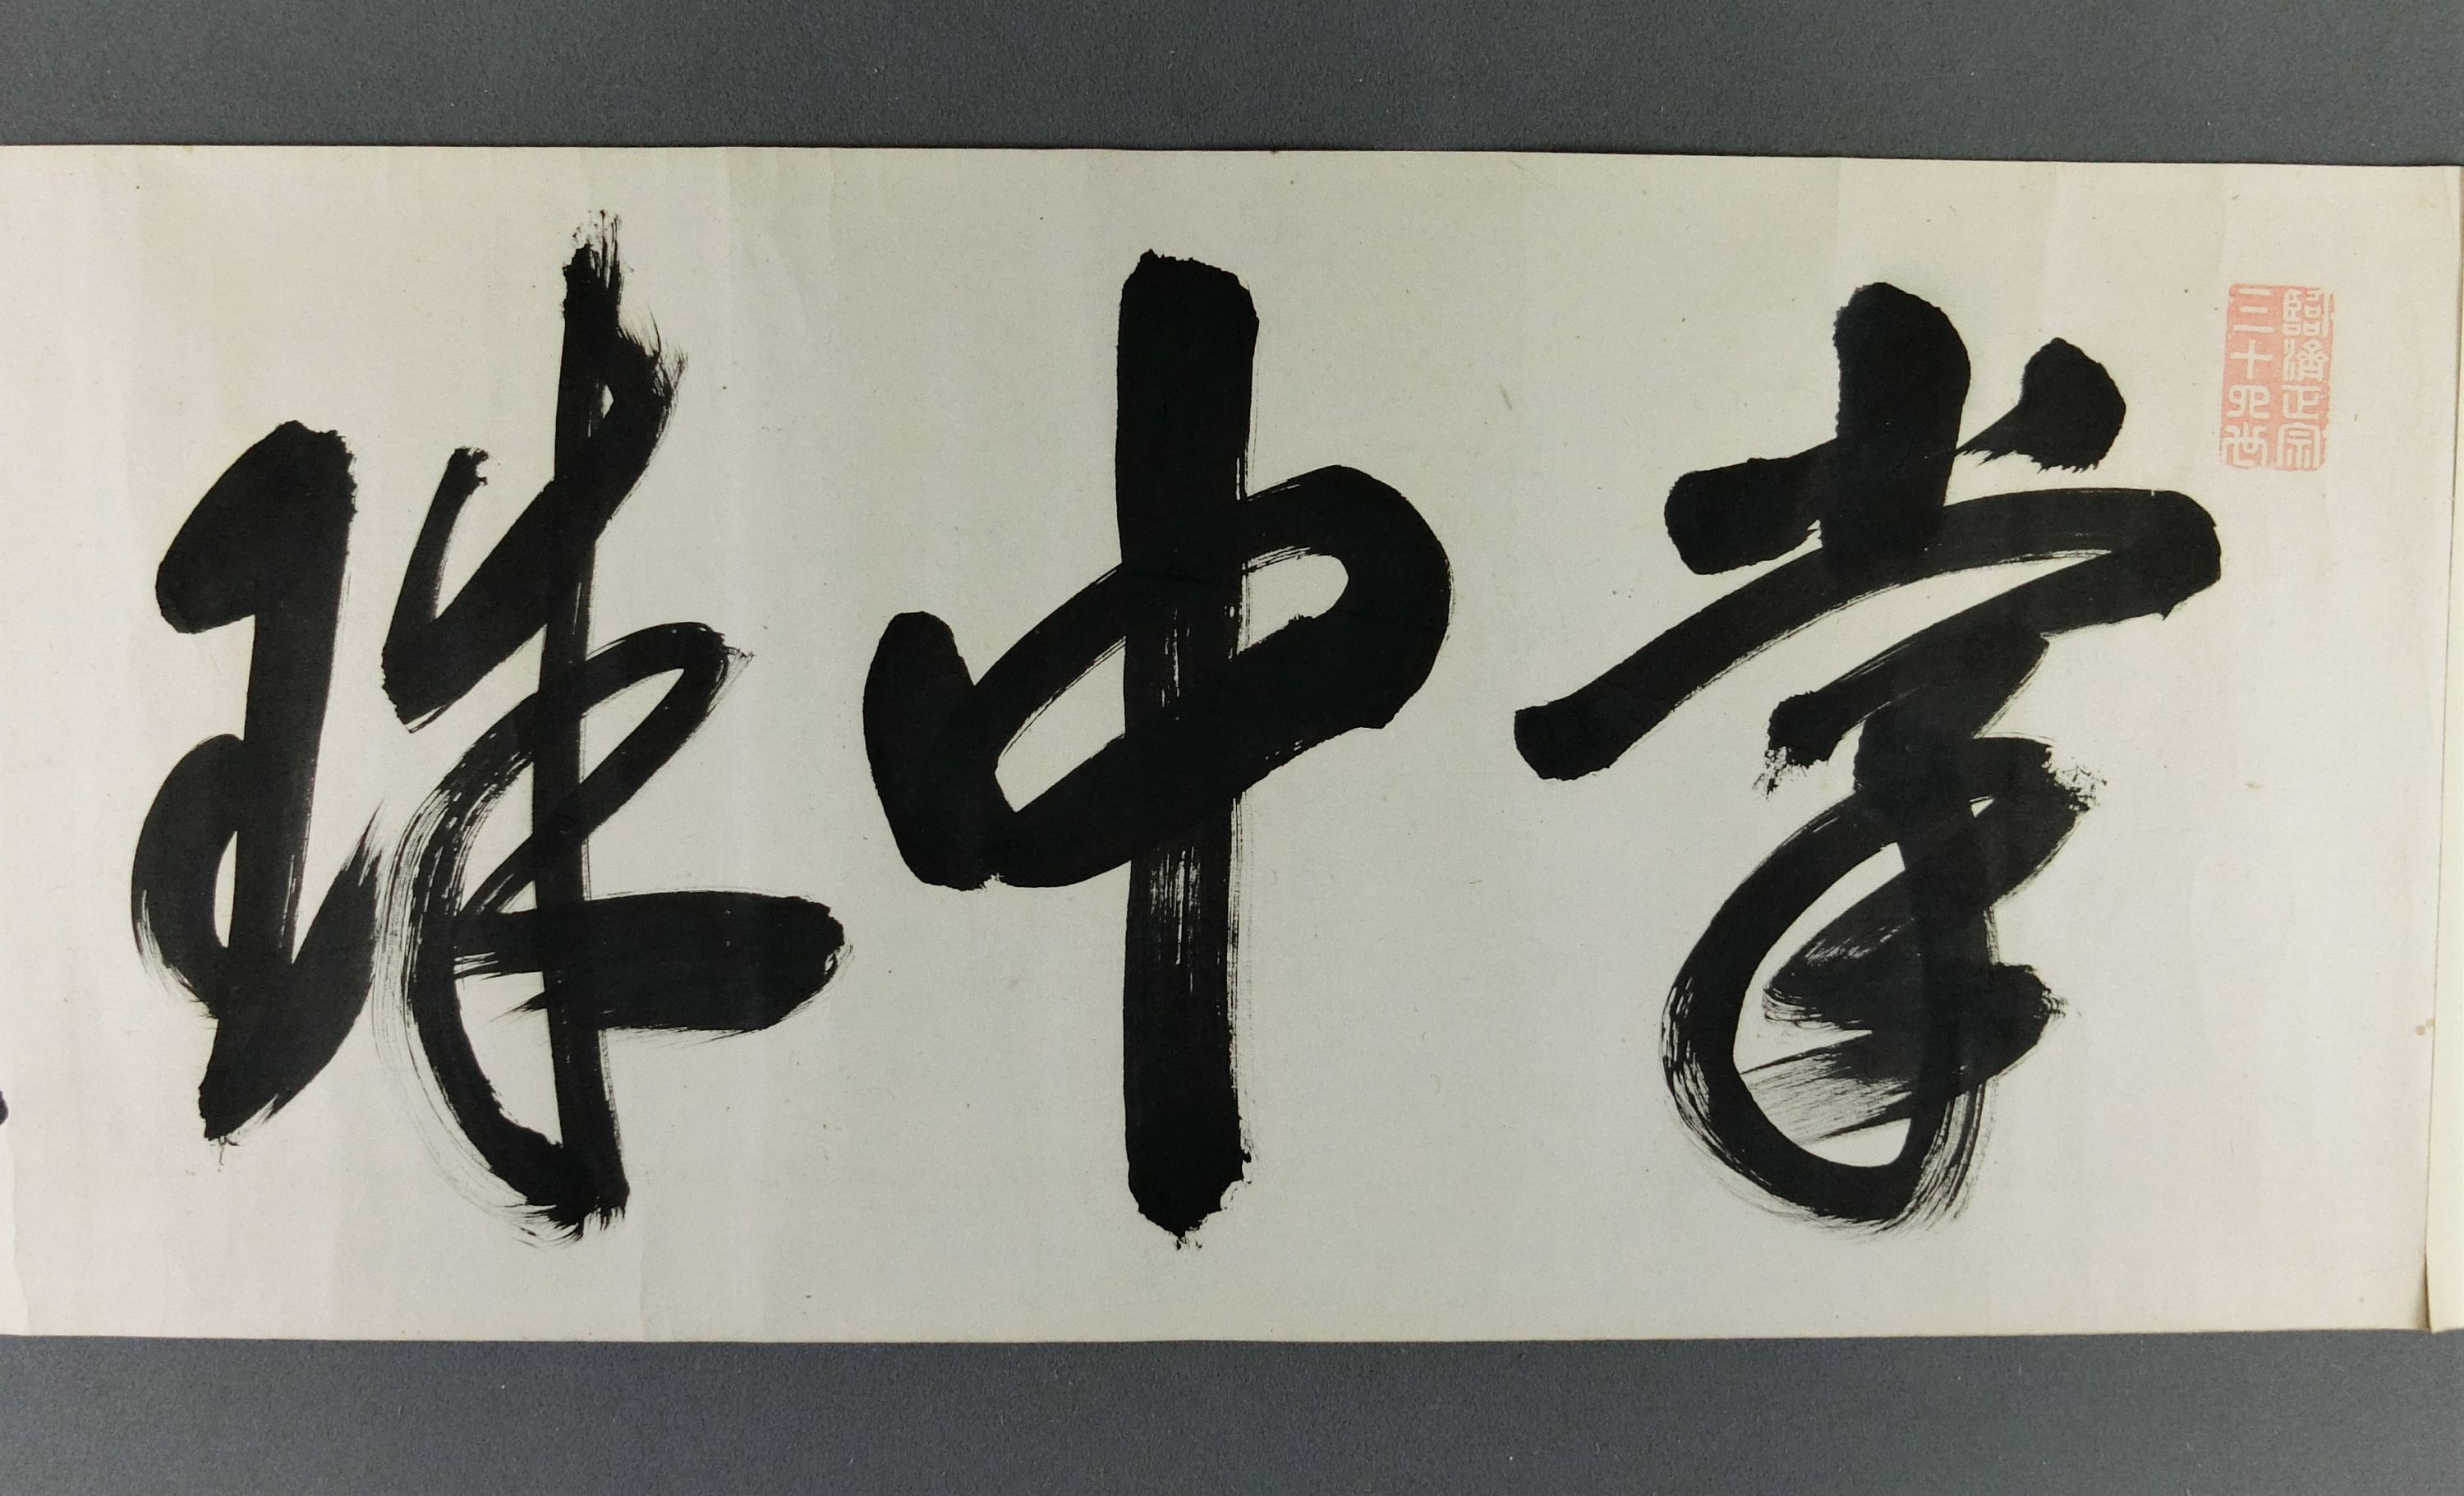 掌中珠
臨濟正宗
三十四世